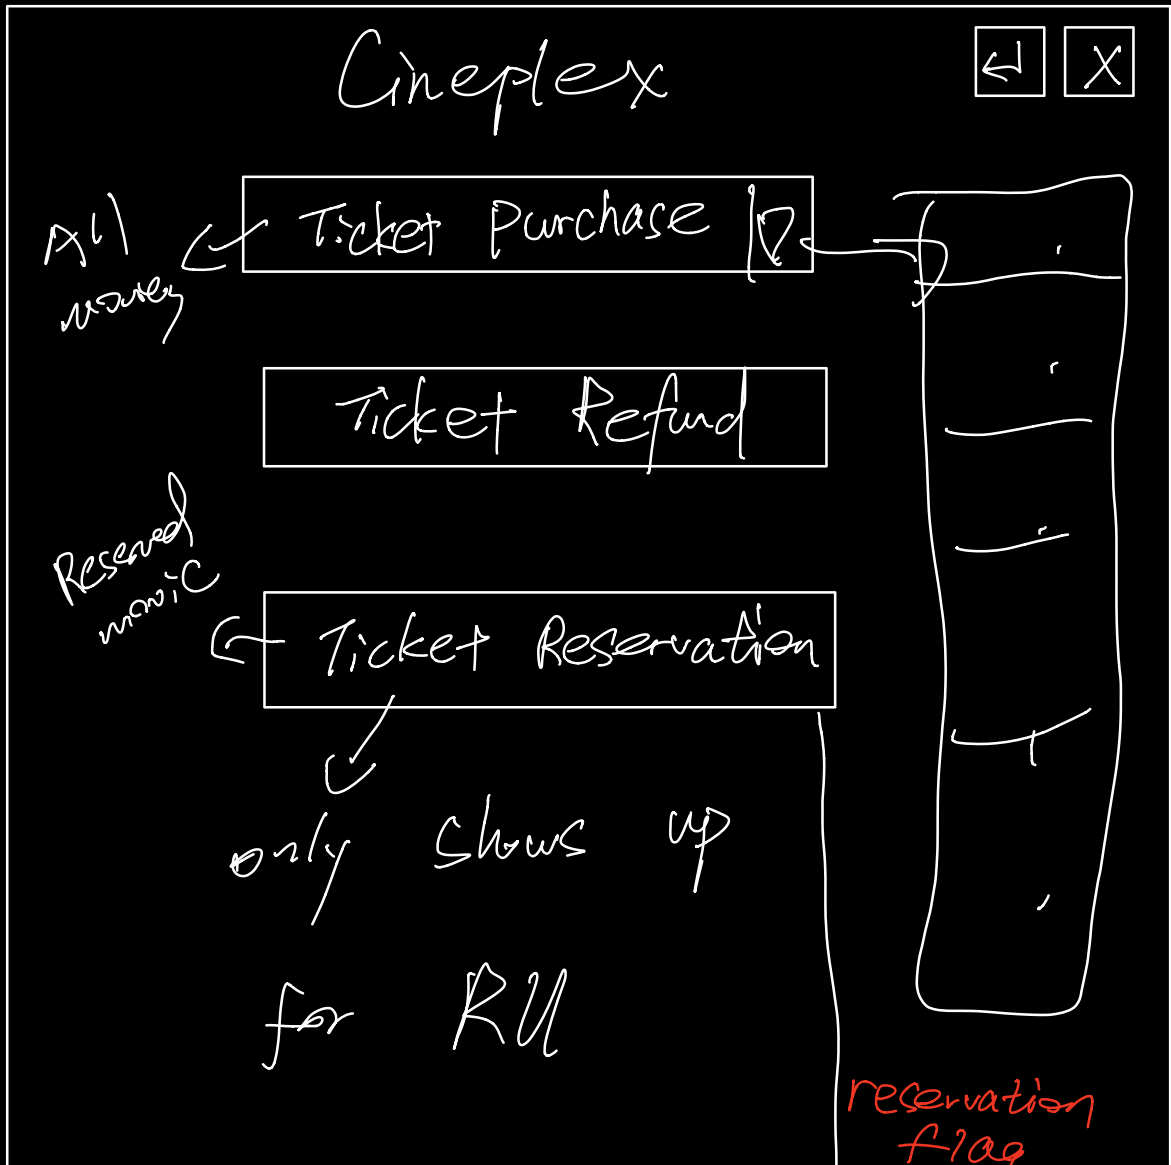 Cineplex
X
Ticket Purchase
All
Ticket Refund
Reserved
movie
Ticket Reservation
only shows up
for RU
reservation
flag